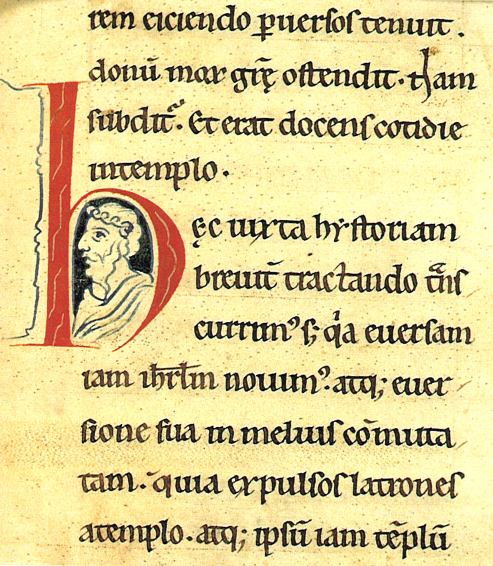 rem eiciendo ꝑuersos tenuit.
donū mox grē ostendit. Nam
subdit̃. Et erat docens cotidie
in templo.
hęc iuxta hystoriam
breuit̃ tractando t̃ns
currimꝰ s; q̃a euersam
iam ihrlm̄ nouimꝰ. atq; euer
sione sua in melius cōmuta
tam. quia expulsos latrones
a templo. atq; ipsū iam tēplū